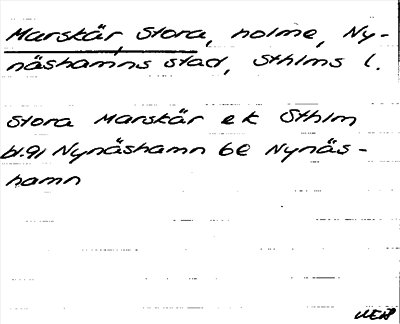 Marskär, Stora, holme, Ny-
näshamns stad, Sthlms l.
Stora Marskär ek Sthlm
bl.91 Nynäshamn 6e Nynäs-
hamn